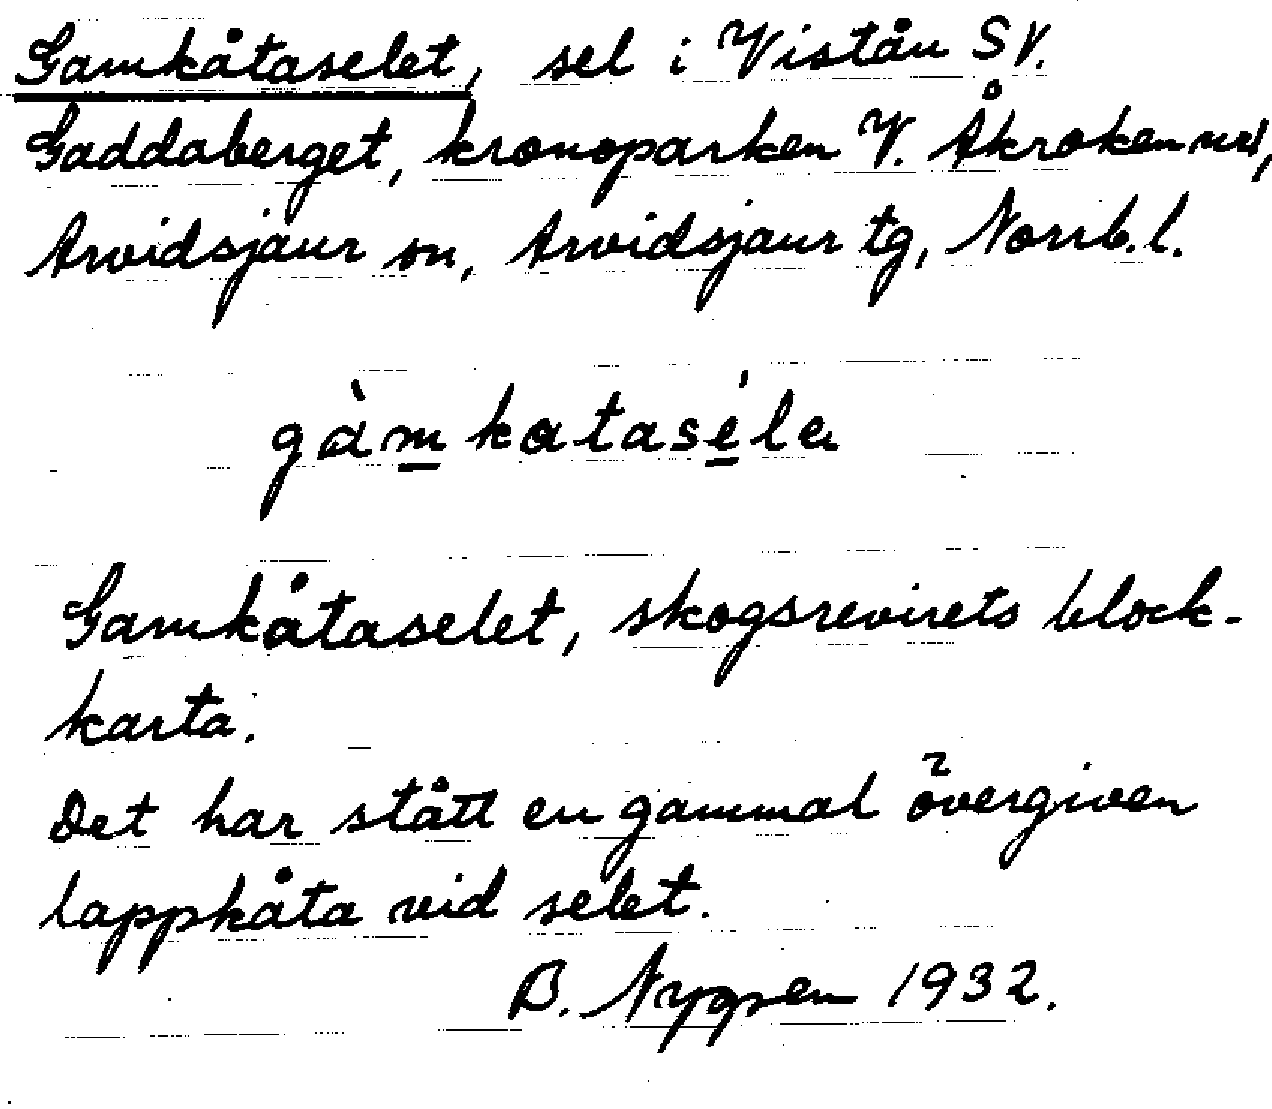 Gamkåtaselet, sel i Viståu SV.
Gaddaberget, kronoparken V. Åkroken nr1,
Arvidsjaur sn, Arvidsjaur tg, Norrb.l.
gàmkataséla
Gamkåtaselet, skogsrevirets block-
karta.
Det har stått en gammal övergiven
lappkåta vid selet.
B. Nygren 1932.